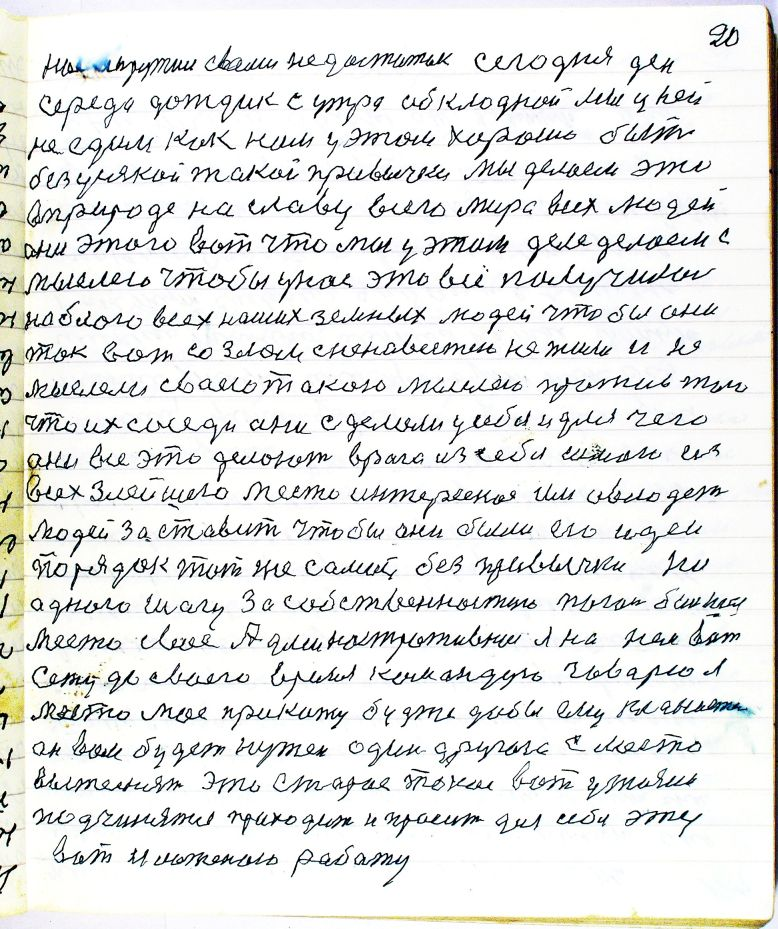 20
свами недостаток сегодня ден
середа дождик с утра обклодной мы у ней
не сдим как нам у этом хорошо быть
без усякой такой привычки мы делаем это
в природе на славу всего мира всех людей
они этого вот что мы у этом деле делаем с
мыслею чтобы у нас это всё получилос
на благо всех наших земных людей чтобы они
так вот со злом с ненавистею не жили и не
мыслели своею такою мыслею против того
что их соседи они сделали у себя и для чего
они все это делоют врага из себя
всех злейшего место интересное им овлодет
людей заставит чтобы они были его идеи
порядок тот же самий без привычки ни
адного шагу за собственностью
место своё Административни я на нем вот
сежу до своего время командую говарю я
место мое прикажу будте добы ему кланятся
он вам будет нужен один другога с место
вытесняят это старае токое вот
подчинятся приходит и просит для себя эту
вот работу